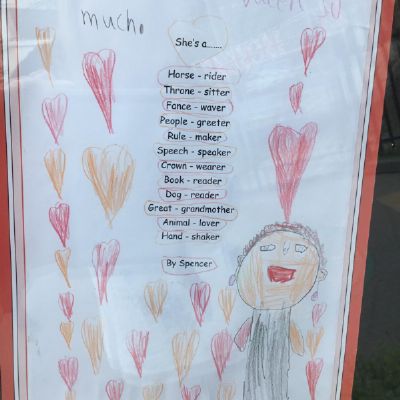 much.
She's a.......
Horse - rider
Throne - sitter
Fance - waver
People - greeter
Rule - maker
Speech - speaker
Crown - wearer
Book - reader
Dog - reader
Great - grandmother
Animal - lover
Hand - shaker
By Spencer